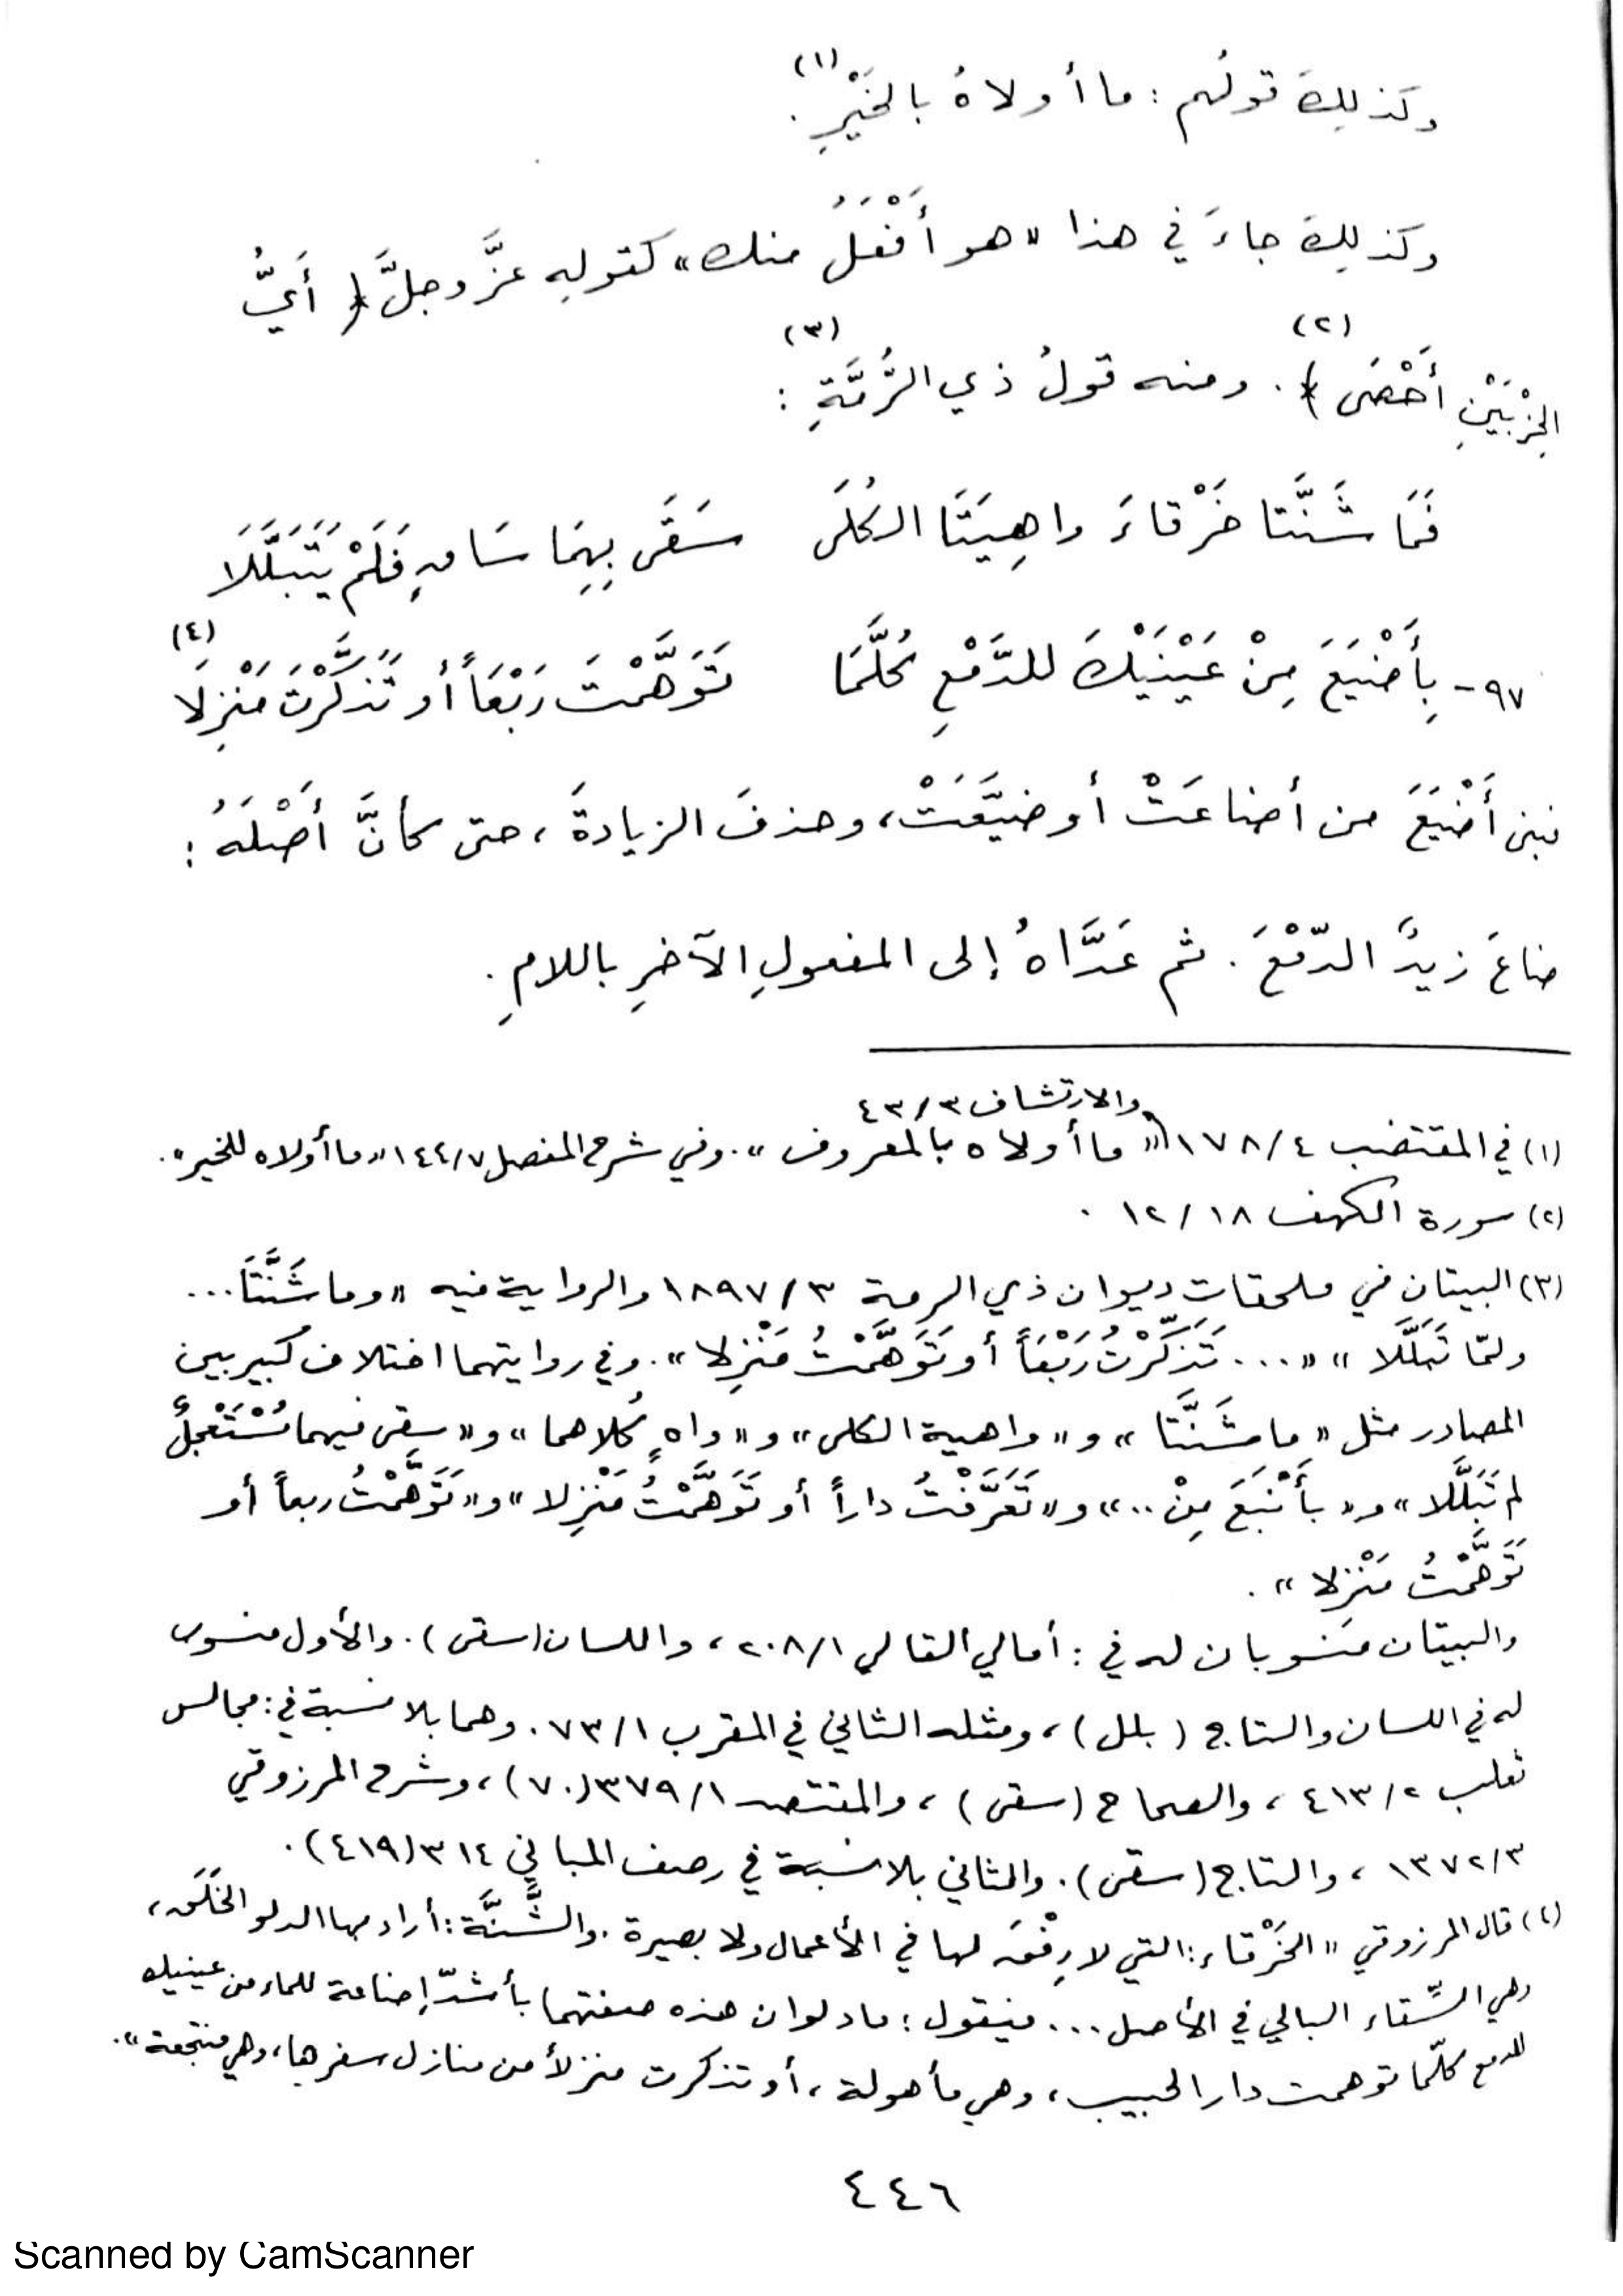 وكذلِكَ قولُهم : ما أولاهُ بالخَيْرِ (١) .
وكذلِكَ جاءَ في هذا « هو أَفْعَلُ منك » كقولِهِ عزَّ وجلَّ ﴿ أَيُّ
الحِزْبَيْنِ أَحْصَى ﴾ (٢) . ومنه قولُ ذي الرُّمَّةِ (٣) :
فَمَا شَنَّتا خَرْقاءَ واهِيَتَا الكُلَى سَقَى بِهِمَا سَاقٍ فَلَمْ يَتَبَلَّلَا
٩٧ - بِأَضْيَعَ مِنْ عَيْنَيْكَ للدَّمْعِ كُلَّمَا تَوَهَّمْتَ رَبْعَاً أو تَذَكَّرْتَ مَنْزِلَا (٤)
فبنى أَضْيَعَ من أضاعَتْ أو ضيَّعَتْ، وحذفَ الزيادةَ ، حتى كأنَّ أَصْلَهُ :
ضاعَ زيدٌ الدّمْعَ . ثم عَدَّاهُ إلى المفعولِ الآخرِ باللامِ .
والارتشاف ٤٣/٣
(١) في المقتضب ١٧٨/٤ « ما أولاه بالمعروف » . وفي شرح المفصل ١٤٤/٧ « ما أولاه للخير » .
(٢) سورة الكهف ١٢/١٨ .
(٣) البيتان في ملحقات ديوان ذي الرمة ١٨٩٧/٣ والرواية فيه « وما شَنَّتَا ...
ولمّا تَبَلَّلا » « ... تَذَكَّرْتُ رَبْعَاً أو تَوَهَّمْتُ مَنْزِلا » . وفي روايتهما اختلاف كبير بين
المصادر مثل « ما شَنَّتا » و « واهية الكلى » و « واهٍ كُلاهما » و « سقى فيهما مُسْتَعْجِلٌ
لم تَبَلَّلا » و « بأَنْبَعَ مِنْ .. » و « تَعَرَّفْتُ داراً أو تَوَهَّمْتُ مَنْزِلا » و « تَوَهَّمْتُ ربعاً أو
تَوَهَّمْتُ مَنْزِلا » .
والبيتان منسوبان له في : أمالي القالي ٢٠٨/١ ، واللسان (سقى) . والأول منسوب
له في اللسان والتاج ( بلل ) ، ومثله الثاني في المقرب ٧٣/١ . وهما بلا نسبة في : مجالس
ثعلب ٤١٣/٢ ، والصحاح (سقى) ، والمقتصد ٣٧٩/١ (٧٠) ، وشرح المرزوقي
١٣٧٢/٣ ، والتاج (سقى) . والثاني بلا نسبة في رصف المباني ٣١٤ (٤١٩) .
(٤) قال المرزوقي « الخَرْقاء : التي لا رِفْقَ لها في الأعمال ولا بصيرة . والشَّنَّة : أراد بها الدلو الخَلَق ،
وهي السِّقاء البالي في الأصل ... فيقول : ما دلوان هذه صفتهما بأشدّ إضاعة للماء من عينيك
للدمع كلّما توهمت دار الحبيب ، وهي مأهولة ، أو تذكرت منزلاً من منازل سفرها ، وهي منتجعة » .
٤٤٦
Scanned by CamScanner